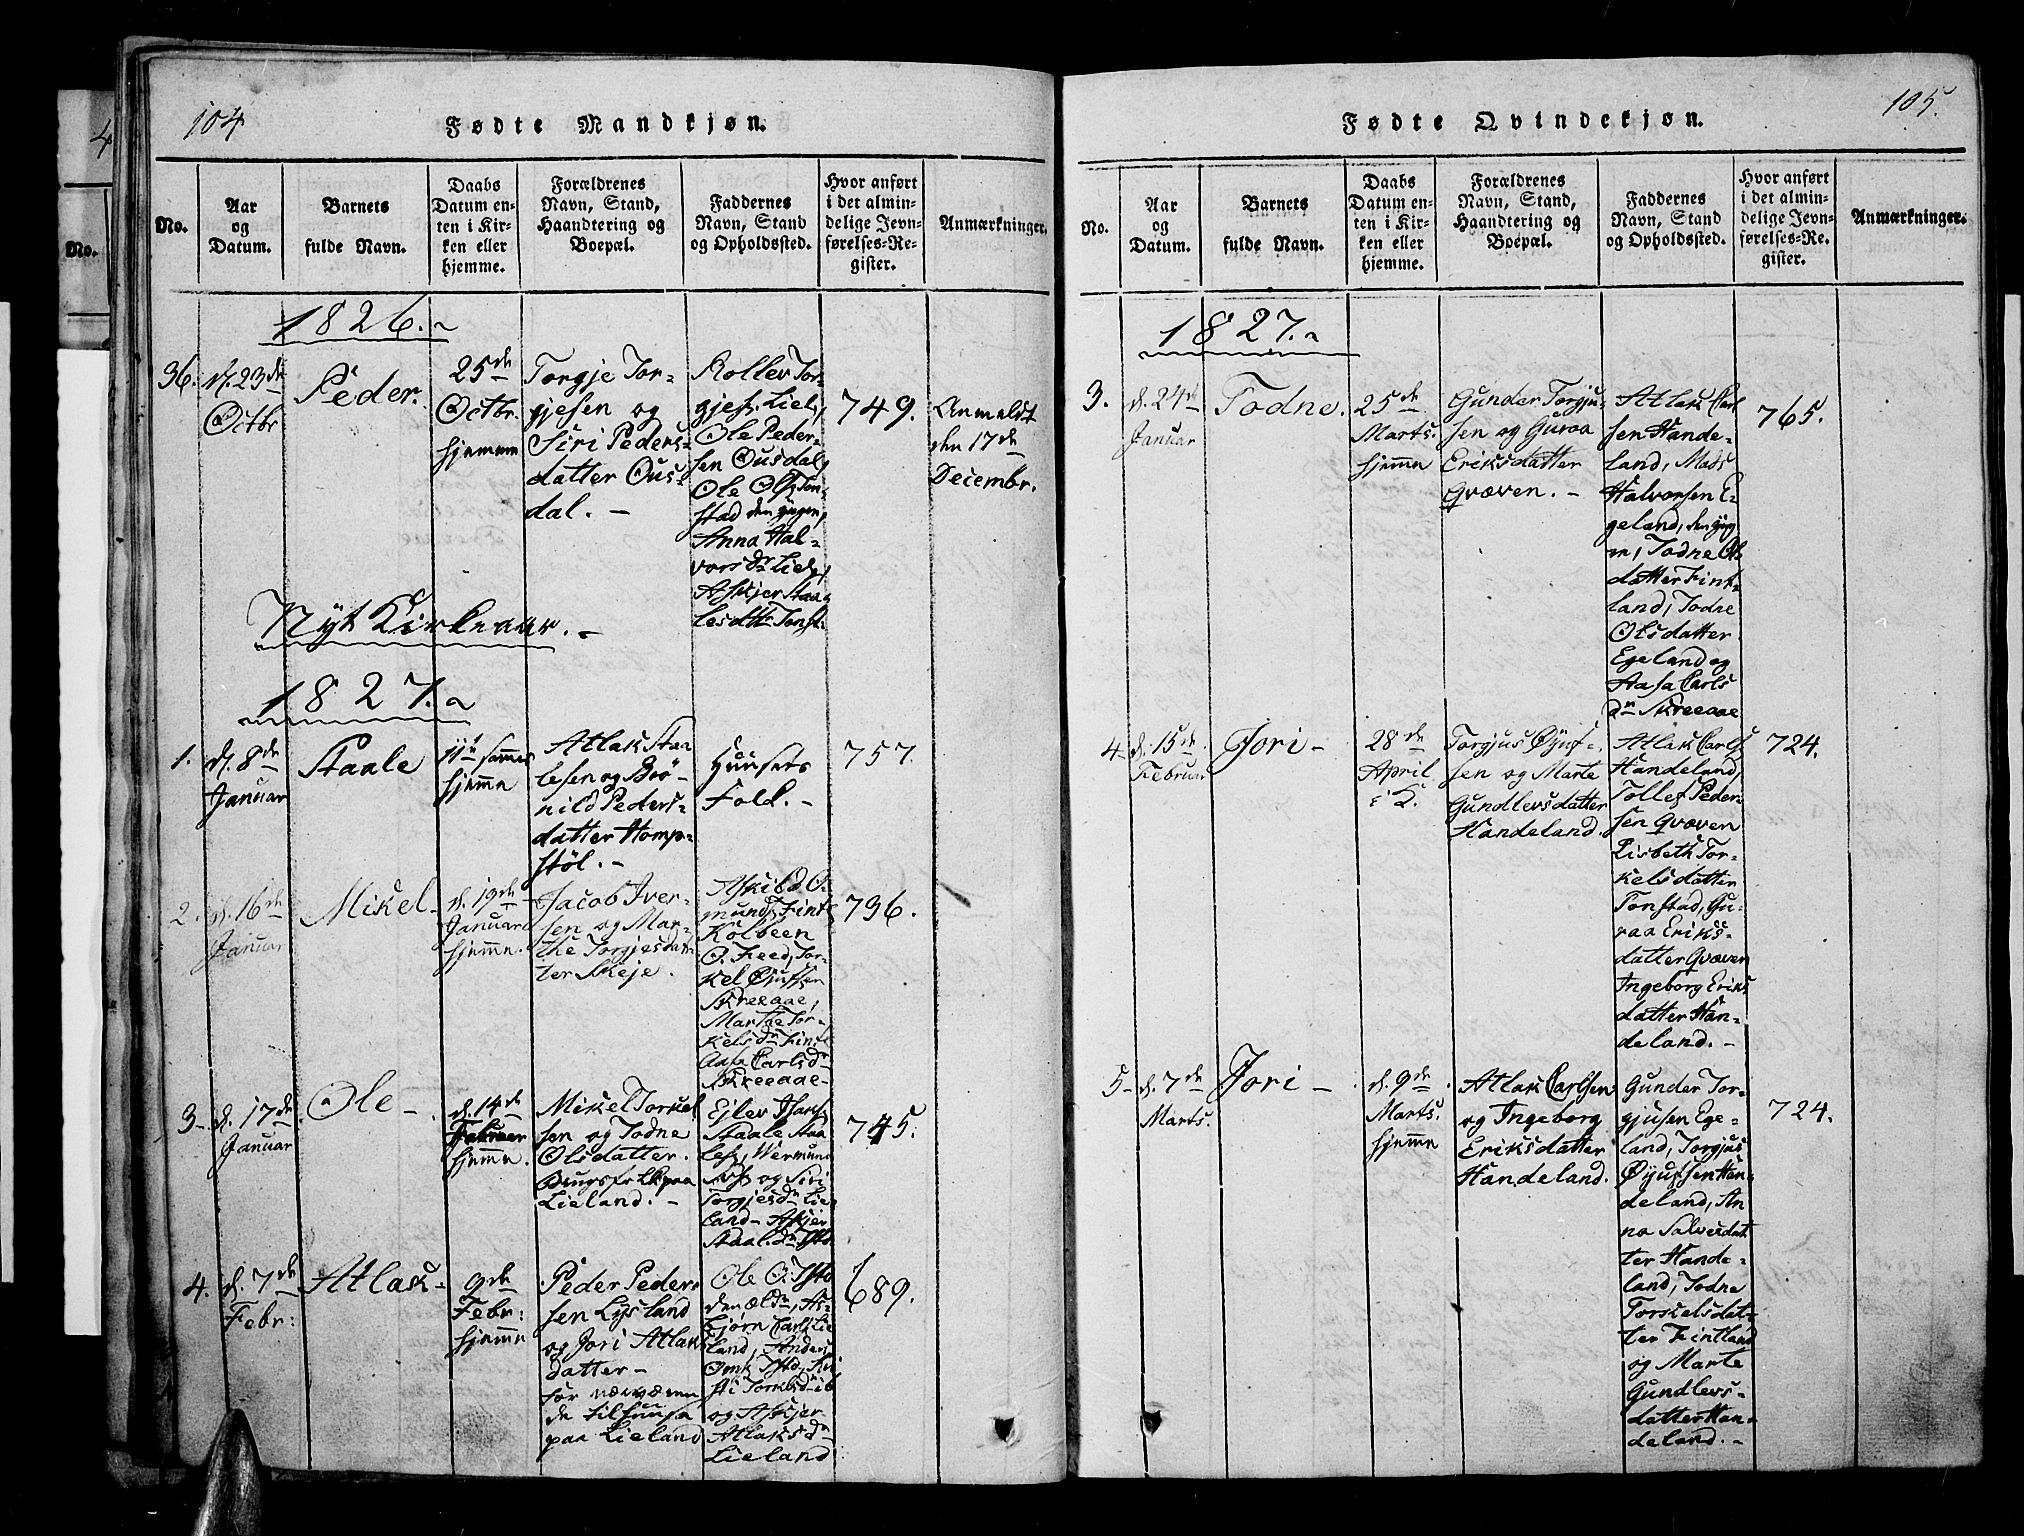 104
Fødte Mandkjøn.
No.
Aar
og
Datum.
Barnets
fulde Navn.
Daabs
Datum en-
ten i Kir-
ken eller
hjemme.
Forældrenes
Navn, Stand,
Haandtering og
Boepæl.
Faddernes
Navn, Stand
og Opholdssted.
Hvor anført
i det almin-
delige Jevn-
førelses-Re-
gister.
Anmærkninger.
1826.
36.
d. 23de
Octbr
Peder.
25de
Octbr.
hjemme
Torgje Tor-
gjesen og
Siri Peders-
datter Ous-
dal. -
Rollev Tor-
gjess. Liel,
Ole Peder-
sen Ousdal,
Ole Ols. Ton-
stad den yngen,
Anna Hal-
vorsdr Liel,
Askjer Staa-
lesdtr Tonst.
749.
Anmeldt
den 17de
Decembr.
Nyt Kirkeaar. -
1827.
1.
d. 8de
Januar
Staale
11te sammes
hjemme
Atlak Staa
lesen og Boö-
nild Peders-
datter Homp-
stöl. -
Huusets
Folk. -
757.
2.
d. 16de
Januar
Mikel
d. 19de
Januar
hjemme.
Jacob Iver-
sen og Mar-
the Torgjesdat-
ter Skeje.
Askild O.
munds. Fintl
Kolbeen
O. Feed, Tor-
kel Øjufsen
Skreeaae,
Marthe Tor-
kelsdr Fintl
Aasa Carlsdr
Skreeaae-
736.
3-
d. 17de
Januar
Ole-
d. 14de
Februar
hjemme.
Mikel Torkel
sen og Todne
Olsdatter.
Brugsfolk paa
Lieland. -
Ejlev Isaks.
Staale Staa
less., Wermund
og Siri
Torgjesdr Lie-
land- Askjer
Staal.dr
745.
4.
d. 7de
Febr:
Atlak-
9de
Febr:
hjemme
Peder Peder
sen Lysland
og Jori Atlaks
datter-
for nærværen
de tilhuusa
paa Lieland
Ole O. Tstd
den æld., As-
bjørn Carls. Lie
land, Anders
Omk Tstd, Siri
og Askjer
Atlaksdr
Lieland
689.
105.
Fødte Qvindekjøn.
No.
Aar
og
Datum.
Barnets
fulde Navn.
Daabs
Datum en-
ten i Kir-
ken eller
hjemme.
Forældrenes
Navn, Stand,
Haandtering og
Boepæl.
Faddernes
Navn, Stand
og Opholdssted.
Hvor anført
i det almin-
delige Jevn-
førelses-Re.
gister.
Anmærkninger.
1827.
3.
d. 24de
Januar
Todne.
25de
Marts.
hjemme
Gunder Torgju-
sen og Guraa
Eriksdatter
Qvæven. -
Atlak Carl
sen Hande-
land, Mads
Halvorsen E-
geland, den yng
re, Todne Ols
datter Fint-
land, Todne
Olsdatter
Egeland og
Aasa Carls
dr Skreeaae
765.
4
d. 15de
Februar
Jori -
28de
April
i K.
Torgjus Øjuf-
sen og Marte
Gundlevsdatter
Handeland.
Atlak Carls
Handeland,
Tollef Peder-
sen Qvæven
Lisbeth Tor-
kelsdatter
Tonstad, Gu-
raa Eriks-
datter Qvæven
Ingeborg Eriks
datter Han-
deland. -
724.
5-
d. 7de
Marts.
Jori -
d. 9de
Marts.
hjemme
Atlak Carlsen
og Ingeborg
Eriksdatter
Handeland.
Gunder Tor-
gjusen Ege-
land, Torgjus
Øjufsen Han-
deland, An
na Salvesdat
ter Hande-
land, Todne
Torkelsdat-
ter Fintland
og Marte
Gundlevs-
datter Han-
deland. -
724.